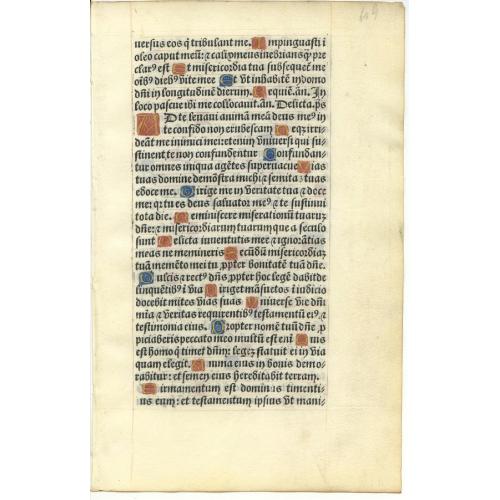 uersus eos q̄ tribulant me. Impinguasti i
oleo caput meū: ⁊ calix meus inebrians q̄ pre
clarꝰ est Et misericordia tua subsequet me
oībꝰ diebꝰ vite mee Et vt inhabitē in domo
dn̄i in longitudinē dierum. Requiē. an̄. In
loco pascue ibi me collocauit. an̄. Delicta. ps
AD te leuaui animā meā deus meꝰ in
te confido non erubescam Neqꝫ irri
deāt me inimici mei: etenim vniuersi qui su-
stinent te non confundentur Confundan-
tur omnes iniqua agētes superuacue Uias
tuas domine demōstra michi: ⁊ semitaꝫ tuas
edoce me. Dirige me in veritate tua ⁊ doce
me: qr tu es deus saluator meꝰ ⁊ te sustinui
tota die. Reminiscere miserationū tuarum
dn̄e: ⁊ misericordiarum tuarum que a seculo
sunt Delicta iuuentutis mee ⁊ ignorātias
meas ne memineris Secūdū misericordiaꝫ
tuā memēto mei tu ꝓpter bonitatē tuā dn̄e.
Dulcis ⁊ rectꝰ dn̄s: ꝓpter hoc legē dabit de
linquētibꝰ i via Diriget māsuetos i iudicio
docebit mites vias suas Uniuerse vie dn̄i
mīa ⁊ veritas requirentibꝰ testamentū eiꝰ ⁊
testimonia eius. Propter nomē tuū dn̄e ꝓ
piciaberis peccato meo multū est enī Quis
est homo q̄ timet dn̄m: legeꝫ statuit ei in via
quam elegit. Anima eius in bonis demo-
rabitur: et semen eius hereditabit terram.
Firmamentum est dominus timenti-
us eum: et testamentum ipsius vt mani-